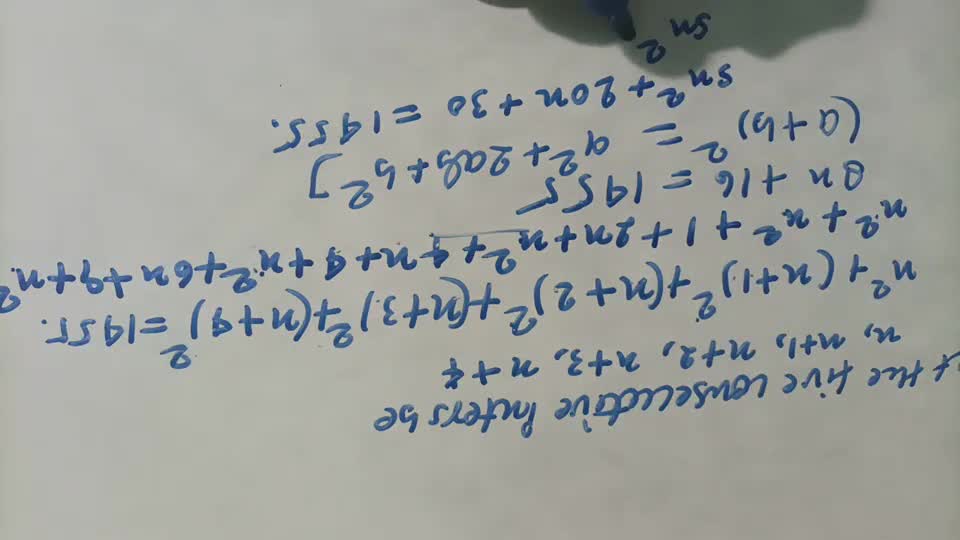 the five consecutive Inters be
n, n+1, n+2, n+3, n+4
n² + (n+1)² + (n+2)² + (n+3)² + (n+4)² = 1455.
n² + n² + 1 + 2n + n² + 4n + 4 + n² + 6n + 9 + n²
8n + 16 = 1455
(a+b)² = a² + 2ab + b²]
5n² + 20n + 30 = 1455.
5n²